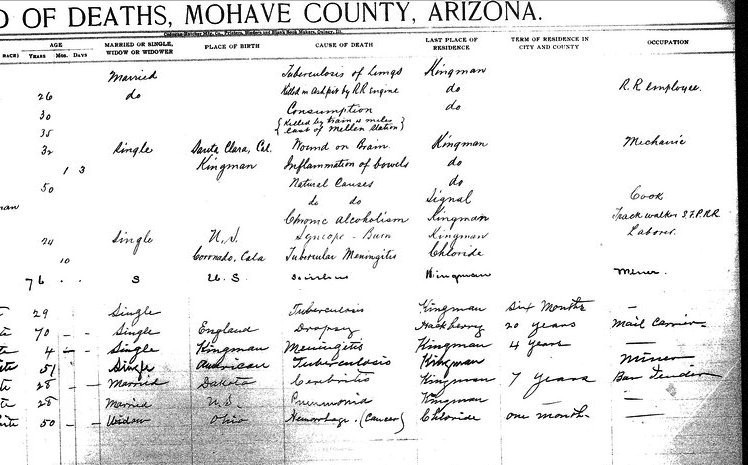 D OF DEATHS, MOHAVE COUNTY, ARIZONA.
RACE) AGE YEARS Mos. DAYS MARRIED OR SINGLE, WIDOW OR WIDOWER PLACE OF BIRTH CAUSE OF DEATH LAST PLACE OF RESIDENCE TERM OF RESIDENCE IN CITY AND COUNTY OCCUPATION
Married Tuberculosis of Lungs Kingman
26 do Killed in Ashpit by R.R. Engine do R.R. employee.
30 Consumption do
35 {Killed by train 2 miles east of Mellen Station}
32 Single Santa Clara, Cal. Wound on Brain Kingman Mechanic
1 3 Kingman Inflammation of bowels do
50 Natural Causes do
do do Signal Cook
man Chronic Alcoholism Kingman Track walker S.F.P.RR
24 Single U.S. Syncope - Burn Kingman Laborer.
10 Coronado, Cala Tubercular Meningitis Chloride
76 S U.S. Kingman Miner.
29 Single Tuberculosis Kingman Six Months —
te 70 - - Single England Dropsy Hackberry 20 years Mail Carrier
te 4 - - Single Kingman Meningitis Kingman 4 years —
ite 51 Single American Tuberculosis Kingman Miner
te 28 - - Married Dakota Kingman 7 years Bar Tender
te 28 Married U.S. Pneumonia Kingman —
ite 50 - - Widow Ohio Hemorrhage. (Cancer) Chloride one month. —